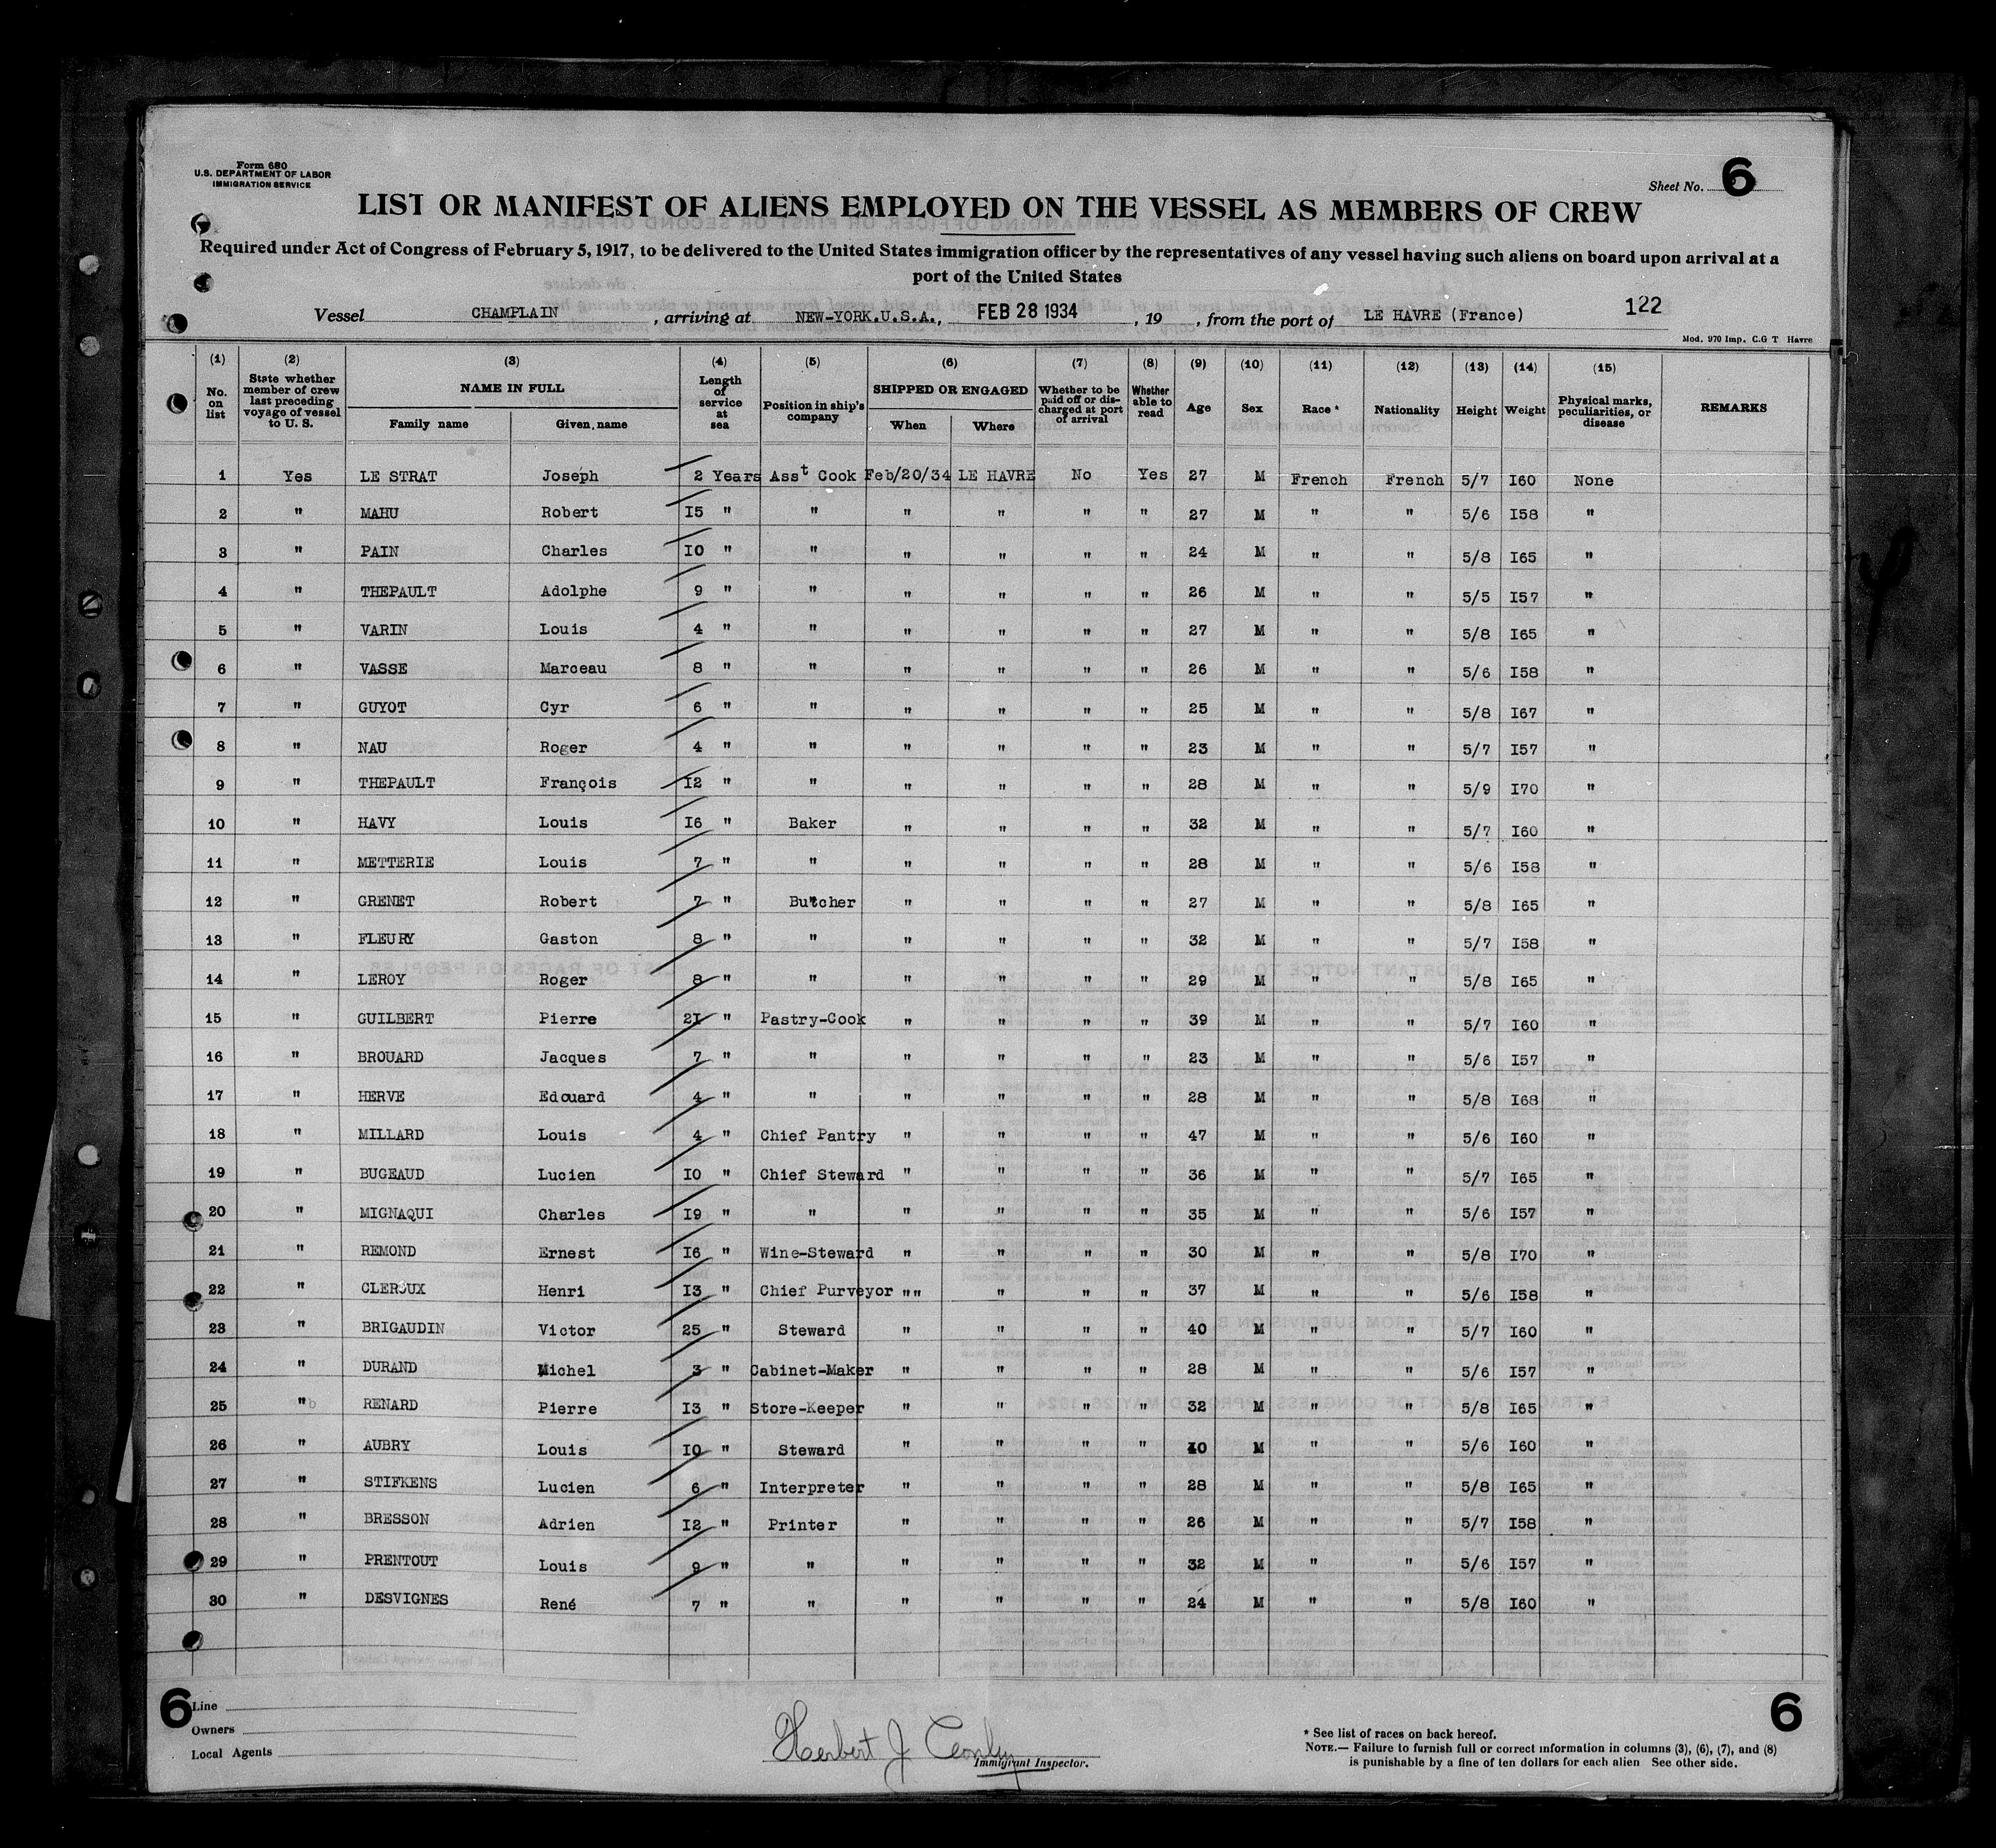 Form 680
U.S. DEPARTMENT OF LABOR
IMMIGRATION SERVICE
Sheet No. 6
LIST OR MANIFEST OF ALIENS EMPLOYED ON THE VESSEL AS MEMBERS OF CREW
Required under Act of Congress of February 5, 1917, to be delivered to the United States immigration officer by the representatives of any vessel having such aliens on board upon arrival at a
port of the United States
Vessel CHAMPLAIN, arriving at NEW-YORK.U.S.A., FEB 28 1934, 19 , from the port of LE HAVRE (France) 122
Mod. 970 Imp. C.G T Havre
(1) (2) (3) (4) (5) (6) (7) (8) (9) (10) (11) (12) (13) (14) (15)
No. on list State whether member of crew last preceding voyage of vessel to U. S. NAME IN FULL Family name Given name Length of service at sea Position in ship's company SHIPPED OR ENGAGED When Where Whether to be paid off or discharged at port of arrival Whether able to read Age Sex Race * Nationality Height Weight Physical marks, peculiarities, or disease REMARKS
1 Yes LE STRAT Joseph 2 Years Asst Cook Feb/20/34 LE HAVRE No Yes 27 M French French 5/7 I60 None
2 " MAHU Robert I5 " " " " " " 27 M " " 5/6 I58 "
3 " PAIN Charles I0 " " " " " " 24 M " " 5/8 I65 "
4 " THEPAULT Adolphe 9 " " " " " " 26 M " " 5/5 I57 "
5 " VARIN Louis 4 " " " " " " 27 M " " 5/8 I65 "
6 " VASSE Marceau 8 " " " " " " 26 M " " 5/6 I58 "
7 " GUYOT Cyr 6 " " " " " " 25 M " " 5/8 I67 "
8 " NAU Roger 4 " " " " " " 23 M " " 5/7 I57 "
9 " THEPAULT François I2 " " " " " " 28 M " " 5/9 I70 "
10 " HAVY Louis I6 " Baker " " " " 32 M " " 5/7 I60 "
11 " METTERIE Louis 7 " " " " " " 28 M " " 5/6 I58 "
12 " GRENET Robert 7 " Butcher " " " " 27 M " " 5/8 I65 "
13 " FLEURY Gaston 8 " " " " " " 32 M " " 5/7 I58 "
14 " LEROY Roger 8 " " " " " " 29 M " " 5/8 I65 "
15 " GUILBERT Pierre 2I " Pastry-Cook " " " " 39 M " " 5/7 I60 "
16 " BROUARD Jacques 7 " " " " " " 23 M " " 5/6 I57 "
17 " HERVE Edouard 4 " " " " " " 28 M " " 5/8 I68 "
18 " MILLARD Louis 4 " Chief Pantry " " " " 47 M " " 5/6 I60 "
19 " BUGEAUD Lucien I0 " Chief Steward " " " " 36 M " " 5/7 I65 "
20 " MIGNAQUI Charles I9 " " " " " " 35 M " " 5/6 I57 "
21 " REMOND Ernest I6 " Wine-Steward " " " " 30 M " " 5/8 I70 "
22 " CLEROUX Henri I3 " Chief Purveyor "" " " " 37 M " " 5/6 I58 "
23 " BRIGAUDIN Victor 25 " Steward " " " " 40 M " " 5/7 I60 "
24 " DURAND Michel 3 " Cabinet-Maker " " " " 28 M " " 5/6 I57 "
25 " RENARD Pierre I3 " Store-Keeper " " " " 32 M " " 5/8 I65 "
26 " AUBRY Louis I0 " Steward " " " " 40 M " " 5/6 I60 "
27 " STIFKENS Lucien 6 " Interpreter " " " " 28 M " " 5/8 I65 "
28 " BRESSON Adrien I2 " Printer " " " " 26 M " " 5/7 I58 "
29 " PRENTOUT Louis 9 " " " " " " 32 M " " 5/6 I57 "
30 " DESVIGNES René 7 " " " " " " 24 M " " 5/8 I60 "
6 Line
Owners
Local Agents
Herbert J
Immigrant Inspector.
* See list of races on back hereof.
NOTE.— Failure to furnish full or correct information in columns (3), (6), (7), and (8)
is punishable by a fine of ten dollars for each alien See other side.
6